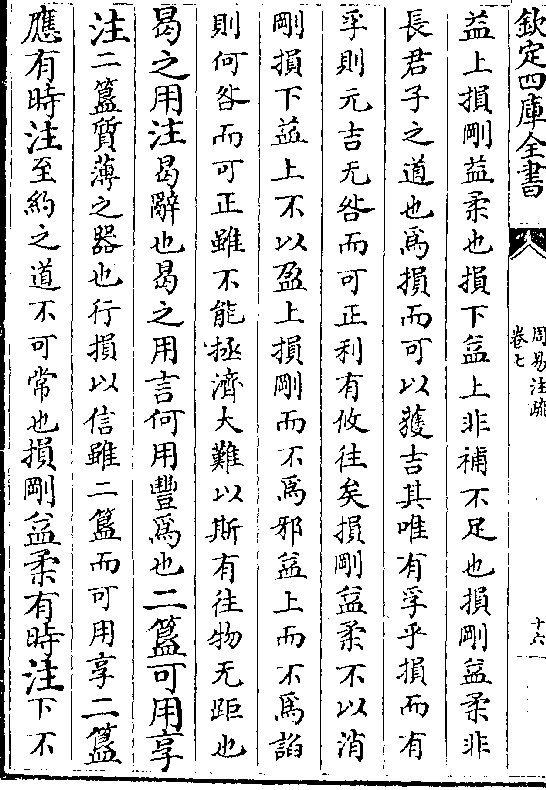 欽定四庫全書
周易注疏
卷七
十六
益上損剛益柔也損下益上非補不足也損剛益柔非
長君子之道也為損而可以獲吉其唯有孚乎損而有
孚則元吉无咎而可正利有攸往矣損剛益柔不以消
剛損下益上不以盈上損剛而不為邪益上而不為諂
則何咎而可正雖不能拯濟大難以斯有往物无距也
曷之用注曷辭也曷之用言何用豐為也二簋可用享
注二簋質薄之器也行損以信雖二簋而可用享二簋
應有時注至約之道不可常也損剛益柔有時注下不